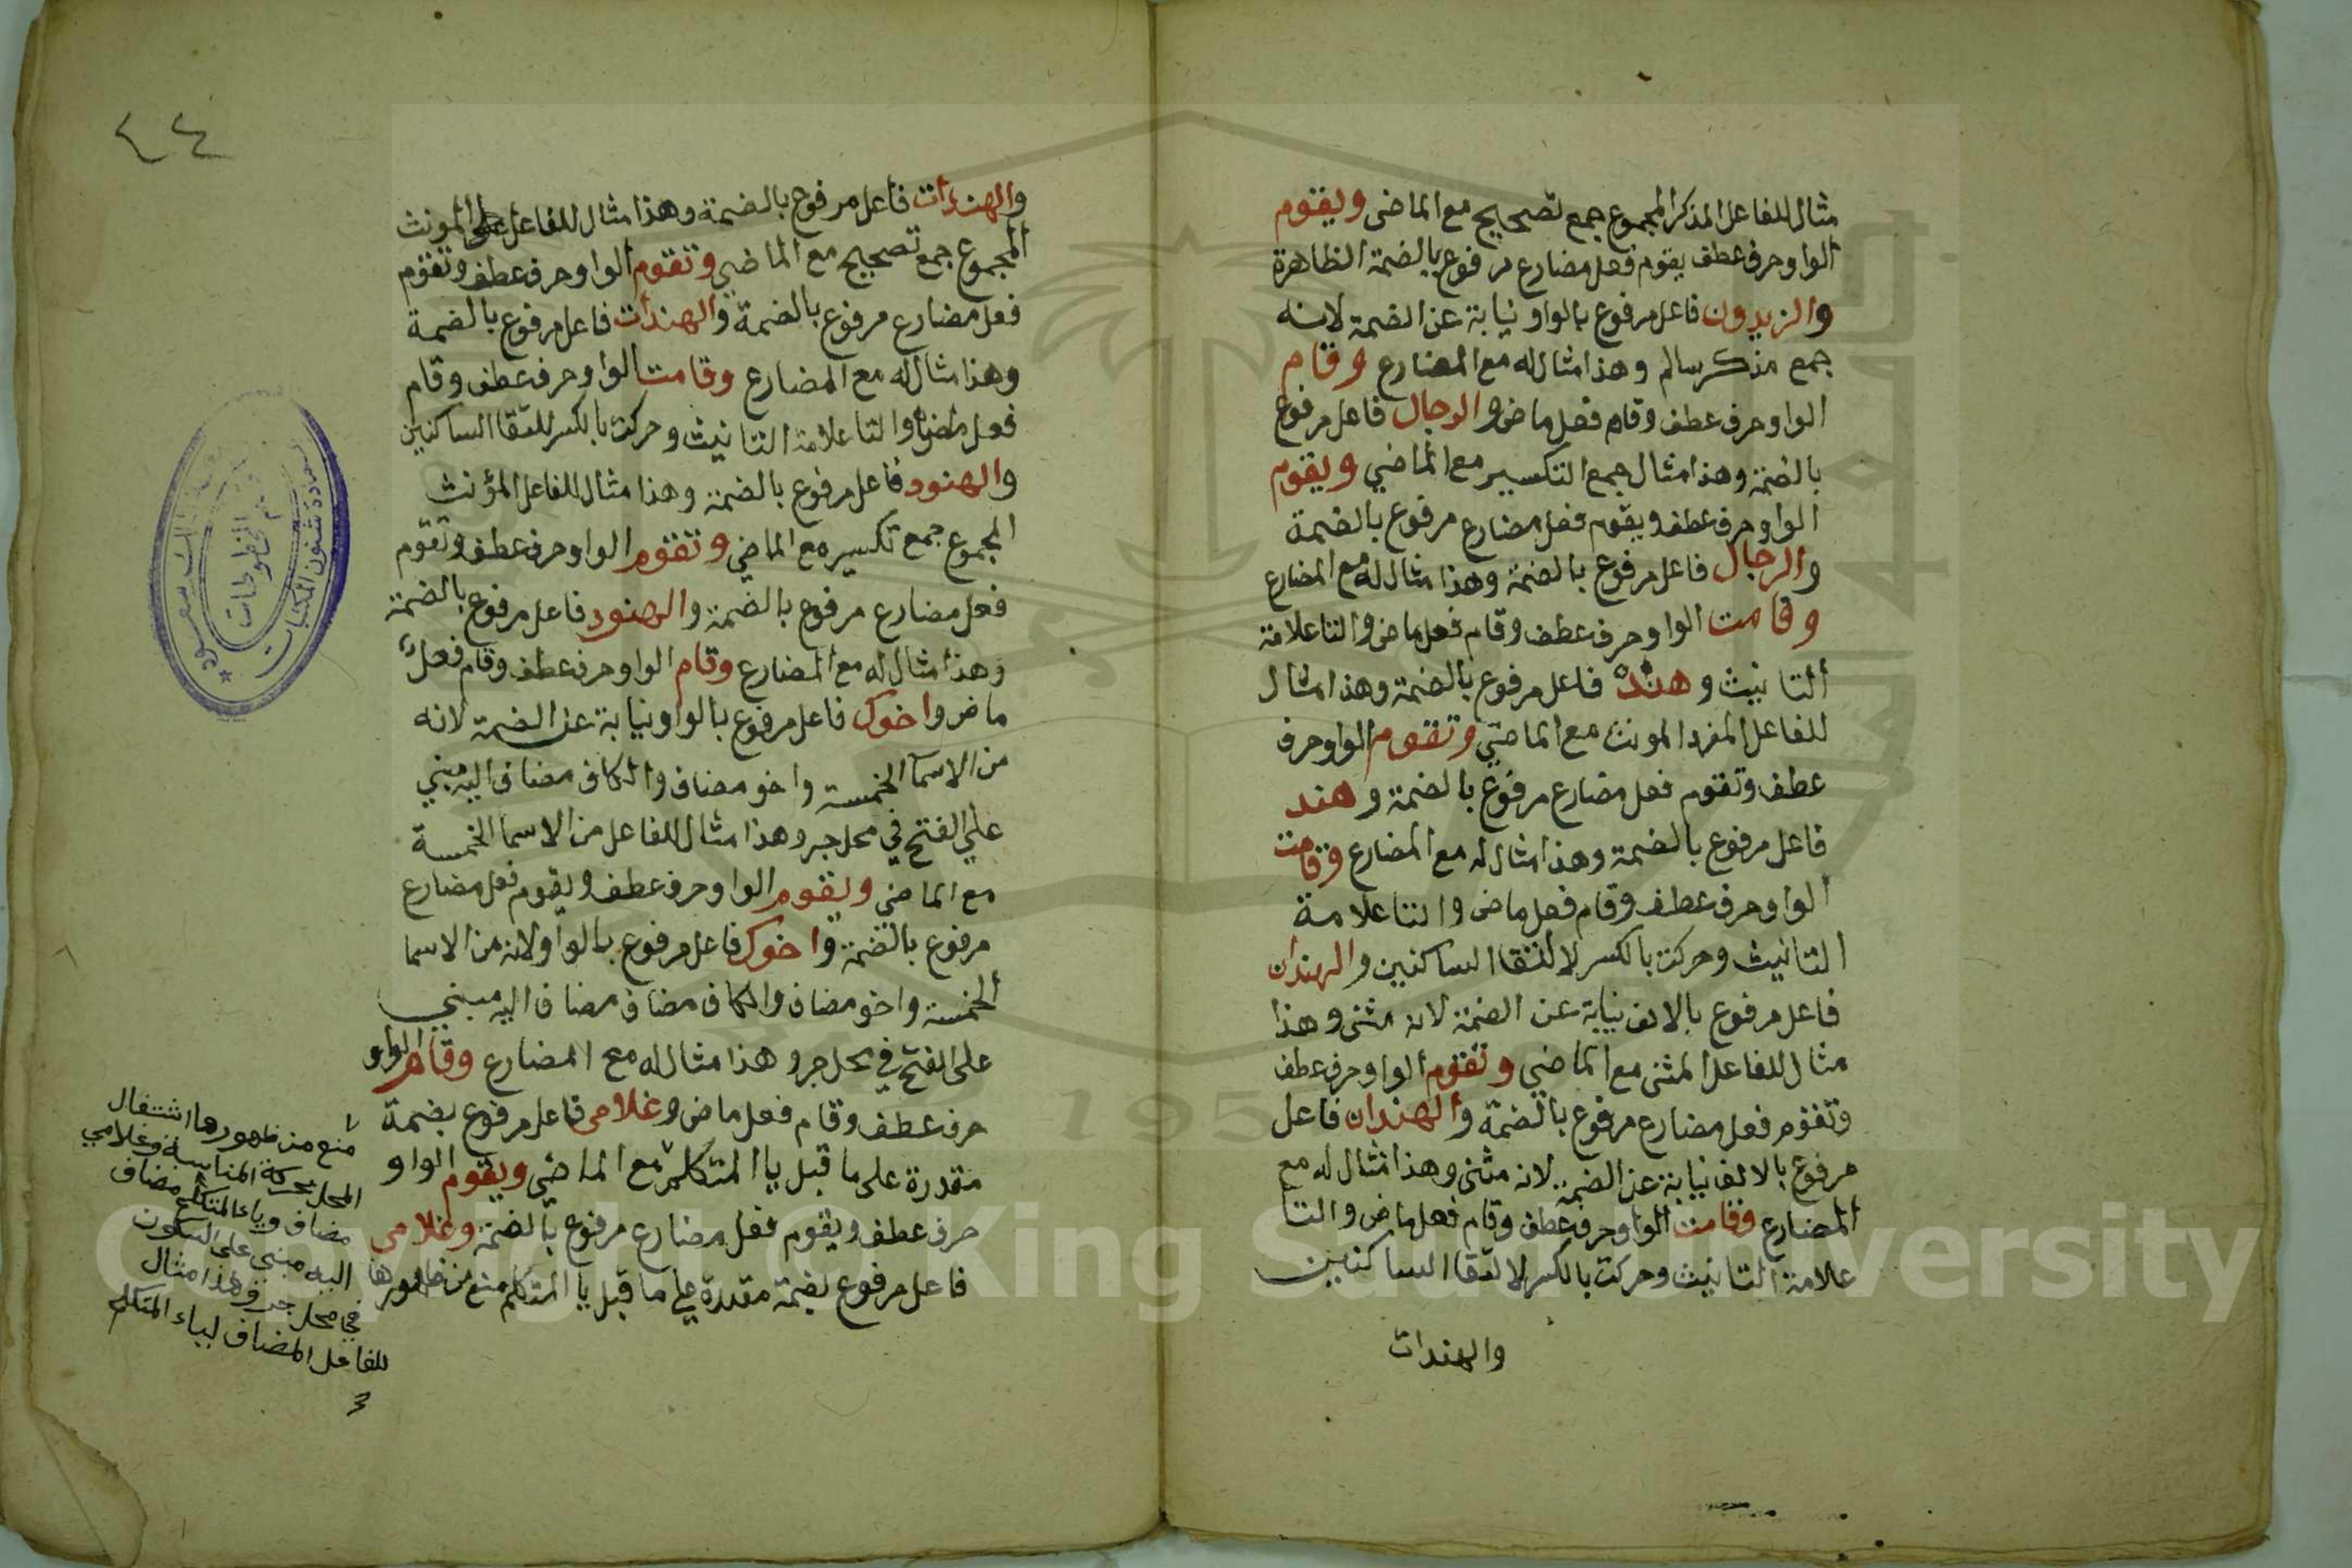 مثال للفاعل المذكر المجموع جمع تصحيح مع الماضى ويقوم
الواو حرف عطف يقوم فعل مضارع مرفوع بالضمة الظاهرة
والزيدون فاعل مرفوع بالواو نيابة عن الضمة لانه
جمع مذكر سالم وهذا مثال له مع المضارع وقام
الواو حرف عطف وقام فعل ماض والرجال فاعل مرفوع
بالضمة وهذا مثال جمع التكسير مع الماضي ويقوم
الواو حرف عطف ويقوم فعل مضارع مرفوع بالضمة
والرجال فاعل مرفوع بالضمة وهذا مثال له مع المضارع
وقامت الواو حرف عطف وقام فعل ماض والتا علامة
التانيث وهندٌ فاعل مرفوع بالضمة وهذا مثال
للفاعل المفرد المونث مع الماضي وتقوم الواو حرف
عطف وتقوم فعل مضارع مرفوع بالضمة وهند
فاعل مرفوع بالضمة وهذا مثال له مع المضارع وقامت
الواو حرف عطف وقام فعل ماض والتا علامة
التانيث وحركت بالكسر لالتقا الساكنين والهندان
فاعل مرفوع بالالف نيابة عن الضمة لانه مثنى وهذا
مثال للفاعل المثنى مع الماضي وتقوم الواو حرف عطف
وتقوم فعل مضارع مرفوع بالضمة والهندان فاعل
مرفوع بالالف نيابة عن الضمة لانه مثنى وهذا مثال له مع
المضارع وقامت الواو حرف عطف وقام فعل ماض والتا
علامة التانيث وحركت بالكسر لالتقا الساكنين
والهندات
٤٤
والهندات فاعل مرفوع بالضمة وهذا مثال للفاعل المونث
المجموع جمع تصحيح مع الماضي وتقوم الواو حرف عطف وتقوم
فعل مضارع مرفوع بالضمة والهندات فاعل مرفوع بالضمة
وهذا مثال له مع المضارع وقامت الواو حرف عطف وقام
فعل ماض والتا علامة التانيث وحركت بالكسر للتقا الساكنين
والهنود فاعل مرفوع بالضمة وهذا مثال للفاعل المؤنث
المجموع جمع تكسير مع الماضي وتقوم الواو حرف عطف وتقوم
فعل مضارع مرفوع بالضمة والهنود فاعل مرفوع بالضمة
وهذا مثال له مع المضارع وقام الواو حرف عطف وقام فعل
ماض واخوك فاعل مرفوع بالواو نيابة عن الضمة لانه
من الاسما الخمسة واخو مضاف والكاف مضاف اليه مبني
علي الفتح في محل جر وهذا مثال للفاعل من الاسما الخمسة
مع الماضي ويقوم الواو حرف عطف ويقوم فعل مضارع
مرفوع بالضمة واخوك فاعل مرفوع بالواو لانه من الاسما
الخمسة واخو مضاف والكاف مضاف مضاف اليه مبني
على الفتح في محل جر وهذا مثال له مع المضارع وقام الواو
حرف عطف وقام فعل ماض وغلامى فاعل مرفوع بضمة
مقدرة على ما قبل يا المتكلم مع الماضي ويقوم الواو
حرف عطف ويقوم فعل مضارع مرفوع بالضمة وغلامى
فاعل مرفوع بضمة مقدرة علي ما قبل يا المتكلم منع من ظهورها
منع من ظهورها اشتغال
المحل بحركة المناسبة وغلامي
مضاف وياء المتكلم مضاف
اليه مبني على السكون
في محل جر وهذا مثال
للفاعل المضاف لياء المتكلم
عمادة شئون المكتبات
قسم المخطوطات
Copyright © King Saud University
195